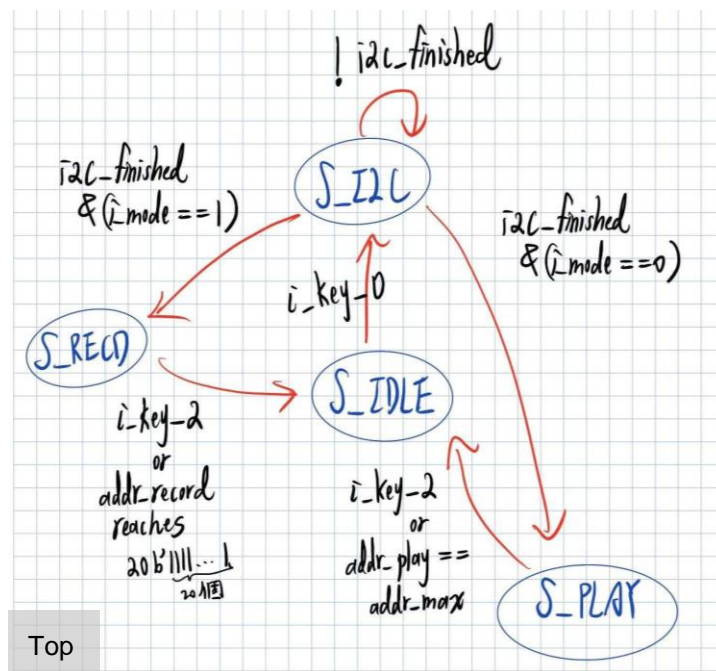 ! i2c_finished
i2c_finished
& (i_mode == 1)
S_I2C
i2c_finished
& (i_mode == 0)
i_key_0
S_RECD
S_IDLE
i_key_2
or
addr_record
reaches
20b'1111...1
20個
i_key_2
or
addr_play ==
addr_max
S_PLAY
Top